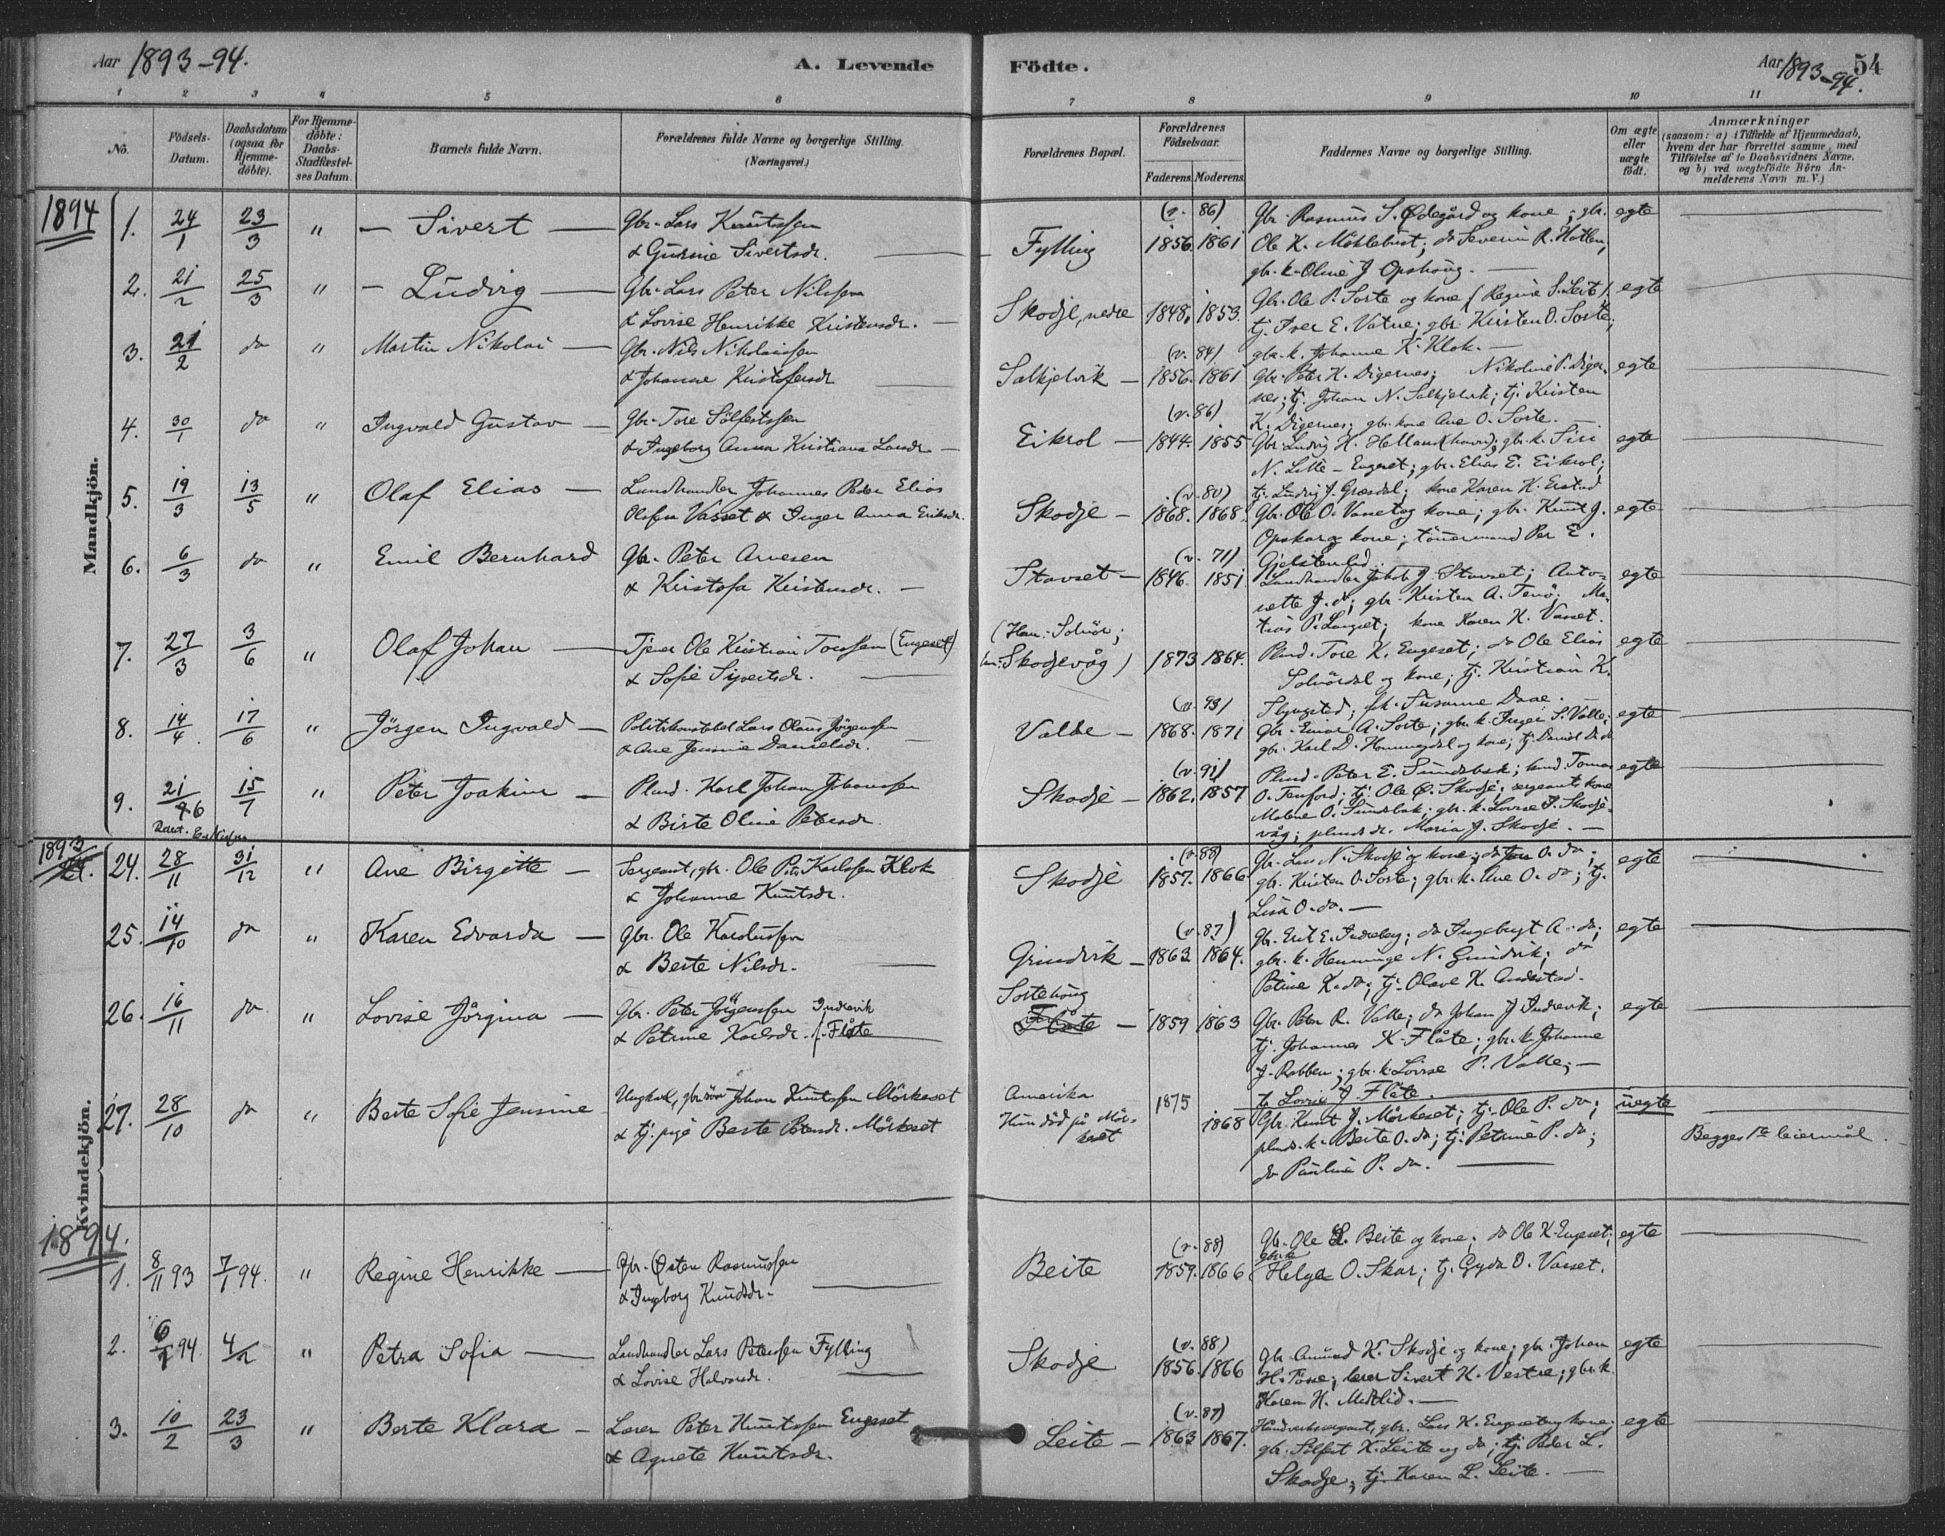 Aar 1893-94. A. Levende Födte. Aar 1893-94. 54
1 2 3 4 5 6 7 8 9 10 11
No. Födsels-Datum. Daabsdatum (ogsaa for Hjemmedöbte). For Hjemmedöbte: Daabs-Stadfæstelses Datum. Barnets fulde Navn. Forældrenes fulde Navne og borgerlige Stilling. (Næringsvei.) Forældrenes Bopæl. Forældrenes Födselsaar. Faderens. Moderens. Faddernes Navne og borgerlige Stilling. Om ægte eller uægte födt. Anmærkninger
(saasom: a) i Tilfælde af Hjemmedaab,
hvem der har forrettet samme, med
Tilföielse af to Daabsvidners Navne,
og b) ved uægtefödte Börn Anmelderens Navn m. V.)
Mandkjön.
1894
1. 24/1 23/3 " - Sivert - Gbr. Lars Knutssen
& Gurine Sivertsdr.
Fylling (v. 86) 1856. 1861
Gbr. Rasmus S. Ødegård og kone; gbr.
Ole K. Möhlebust; do Severin R. Hatlen;
gbr. k. Oline J Opshaug. egte
2. 21/2 25/3 " - Ludvig - Gbr. Lars Peter Nilssen
& Lovise Henrikke Kristensdr.
Skodje, nedre 1848. 1853.
Gbr. Ole P. Sorte og kone (Regine S. Leite);
tj. Iver E. Vatne; gbr. Kristen O. Sorte;
gbr. k. Johanne K. Klok. egte
3. 21/2 do " Martin Nikolai - Gbr. Nils Nikolaissen
& Johanne Kristofersdr
Salkjelvik - (v. 84) 1856. 1861
Gbr. Peter K. Digernes; Nikoline P. Digernes;
tj. Johan N. Salkjelvik; tj. Kristen
K. Digernes; gbr. kone Ane O. Sorte. egte
4. 30/1 do " Ingvald Gustav - Gbr. Tore Sölfestssen
& Ingeborg Anna Kristiana Larsdr.
Eikrol - (v. 86) 1844. 1855
Gbr. Ludvig H. Helland; gbr. k. Siri
N. Litle-Engeset; gbr. Elias E. Eikrol;
tj. Ludvig J. Græsdal; kone Karen K. Erstad egte
5. 19/3 13/5 " Olaf Elias - Landhandler Johannes Peder Elias
Olufsen Vasset & Inger Anna Eriksdr.
Skodje - (v. 80) 1868. 1868.
Gbr. Ole O. Vasset og kone; gbr. Knut J.
Opskar og kone; tömermand Per E.
Gjelstenlid. egte
6. 6/3 do " Emil Bernhard Gbr. Peter Arnesen
& Kristofa Kristensdr.
Stavset - (v. 71) 1846. 1851
Landhandler Jakob J Stavset; Antonette
J. do; gbr. Kristen A. Tenö;
P. Langset; kone Karen K. Vasset. egte
7. 27/3 3/6 " Olaf Johan - Tjener Ole Kristian Toressen (Engeset)
& Sofie Sivertsdr.
(Han: Solnör;
hun: Skodjevåg) 1873 1864.
Plmd. Tore K. Engeset; do Ole Elias
Solnördal og kone; tj. Kristian K.
Flyngstad; frk. Susanne Daae. egte
8. 14/4 17/6 " Jörgen Ingvald - Politikonstabel Lars Olaus Jörgenssen
& Ane Jensine Danielsdr.
Valle - (v. 93) 1868. 1871
Gbr. Einar A. Sorte; gbr. k. Inger S. Valle;
gbr. Karl D. Hommegdal og kone; tj. Daniel D. do egte
9. 21/6 15/7 " Peter Joakim - Plmd. Karl Johan Johanssen
& Birte Oline Petersdr.
Skodje - (v. 91) 1862. 1857
Plmd. Peter E. Sundsbak; lmd. Tomas
O. Tenfjord; tj. Ole O. Skodje; sergeants kone
Malene O. Sundsbak; gbr. k. Lovise P. Skodjevåg;
plmds dr. Maria J. Skodje. egte
Kvindekjön.
1893
24. 28/11 31/12 " Ane Birgitte - Sergeant, gbr. Ole P. Karlssen Klok
& Johanne Knutsdr.
Skodje (v. 88) 1857. 1866
Gbr. Lars N. Skodje og kone; do Jon O. do;
gbr. Kristen O. Sorte; gbr. k. Ane O. do; tj.
Lisa O. do. egte
25. 14/10 do " Karen Edvarda - Gbr. Ole Karolussen
& Berte Nilsdr.
Grindvik - (v. 87) 1863 1864.
Gbr. Erik E. Indreberg; do Ingebrigt A. do;
gbr. k. Hemminge N. Grindvik; do
Petrine K. do; tj. Olave K. Andestad. egte
26. 16/11 do " Lovise Jörgina - Gbr. Peter Jörgenssen Indrevik
& Petrine Karlsdr. Flåte
Sortehaug
Flåte - 1859 1863
Gbr. Peter R. Valle; do Johan J Indrevik;
tj. Johannes K. Flåte; gbr. k. Johanne
J. Robben; gbr. k. Lovise P. Valle;
tj. Lovise J. Flåte. egte
27. 28/10 do " Berte Sofie Jensine Ungkarl, gbrsön Johan Knutssen Mörkeset
& tj. pige Berte Petersdr. Mörkeset
Amerika
Hun död på Mörkeset 1875 1868
Gbr. Knut J. Mörkeset; tj. Ole P. do;
plmds. k. Berte O. do; tj. Petrine P. do;
do Pauline P. do. uegte Begges 1ste leiermål.
1894.
1. 8/11 93 7/1 94. " Regine Henrikke - Gbr. Østen Rasmussen
& Ingeborg Knudsdr.
Beite (v. 88) 1859. 1866
Gbr. Ole L. Beite og kone; do Ole K. Engeset;
gbr. k. Helga O. Skar; tj. Gyda O. Vasset. egte
2. 6/1 94 4/2 " Petra Sofia - Landhandler Lars Peterssen Fylling
& Lovise Halvorsdr.
Skodje (v. 88) 1856. 1866
Gbr. Amund K. Skodje og kone; gbr. Johan
H. Tosse; lærer Sivert K. Vestre; gbr. k.
Karen H. Medlid. egte
3. 10/2 23/3 " Berte Klara - Lærer Peter Knutssen Engeset
& Agnete Knutsdr.
Leite - (v. 87) 1863 1867.
gbr. Lars K. Engeset og kone;
gbr. Sölfest K. Leite og do; tj. Peder L.
Skodje; tj. Karen L. Leite. egte